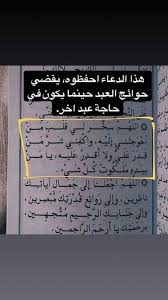 هذا الدعاء احفظوه، يقضي
حوائج العبد حينما يكون في
حاجة عبد اخر.
اللهم سخر لي قلب من
أحوجتني إليه، واكفني شر من
قدر علي ولا أقدر عليه، يا من
بيده ملكوت كل شيء
اللهم اجعلنا إلى جمال آياتك
ناظرين، وإلى روائع قدرتك مبصرين،
وإلى جنابك الرحيم متجهين
برحمتك يا أرحم الراحمين.